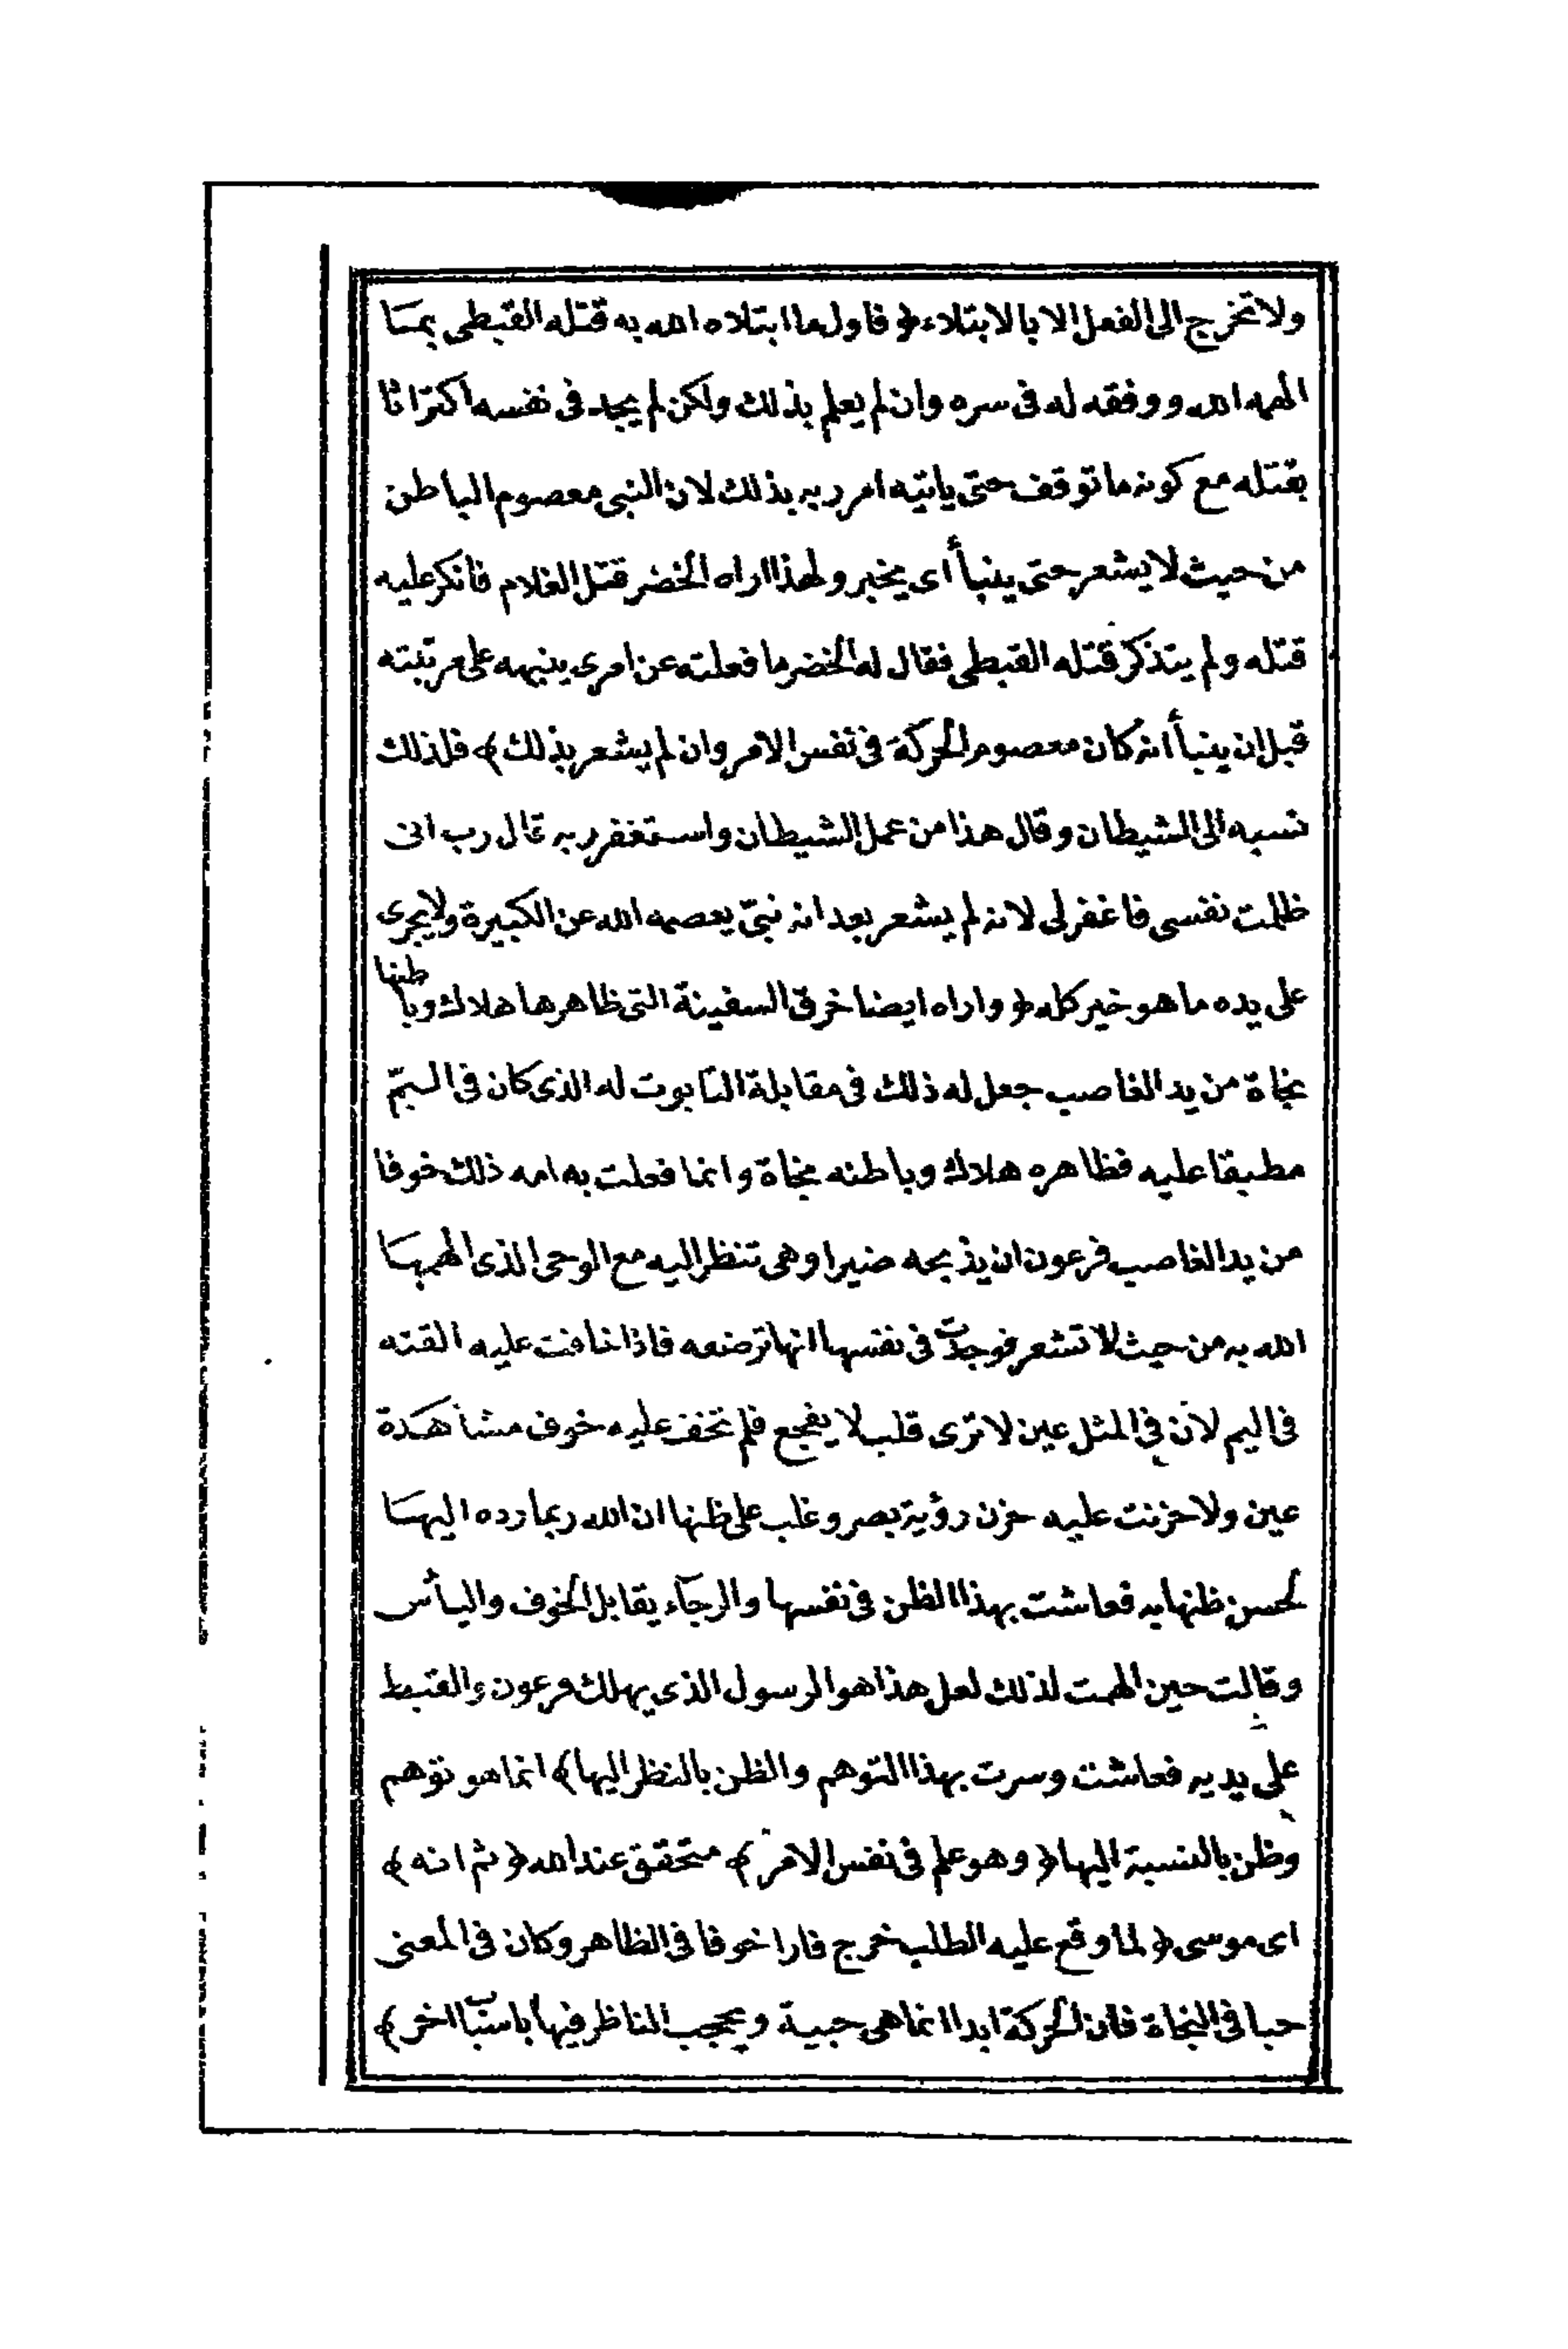 ولا تخرج الى الفعل الا بالابتلاء ﴿ فاول ما ابتلاه الله به قتله القبطى بمسا
الهمه الله ووفقه له فى سره وان لم يعلم بذلك ولكن لم يجد فى نفسه اكتراثا
بقتله مع كونه ما توقف حتى ياتيه امر ربه بذلك لان النبى معصوم الباطن
من حيث لا يشعر حتى ينبأ أى يخبر ولهذا اراه الخضر قتل الغلام فانكر عليه
قتله ولم يتذكر قتله القبطى فقال له الخضر ما فعلته عن امرى ينبهه على مرتبته
قبل ان ينبأ أنه كان معصوم الحركة فى نفس الامر وان لم يشعر بذلك ﴾ فلذلك
نسبه الى الشيطان وقال هذا من عمل الشيطان واستغفر ربه قال رب انى
ظلمت نفسى فاغفر لى لانه لم يشعر بعد انه نبىّ يعصمه الله عن الكبيرة ولا يجرى
على يده ما هو خير كله ﴿ واراه ايضا خرق السفينة التى ظاهرها هلاك وباطنها
نجاة من يد الغاصب جعل له ذلك فى مقابلة التابوت له الذى كان فى اليمّ
مطبقا عليه فظاهره هلاك وباطنه نجاة وانما فعلت به امه ذلك خوفا
من يد الغاصب فرعون ان يذبحه ضيرا وهى تنظر اليه مع الوحى الذى الهمها
الله به من حيث لا تشعر فوجدت فى نفسها انها ترضعه فاذا خافت عليه القته
فى اليم لان فى المثل عين لا ترى قلب لا يفجع فلم تخف عليه خوف مشاهدة
عين ولا حزنت عليه حزن رؤية بصر وغلب على ظنها ان الله ربما رده اليها
لحسن ظنها به فعاشت بهذا الظن فى نفسها والرجآء يقابل الخوف واليأس
وقالت حين الهمت لذلك لعل هذا هو الرسول الذى يهلك فرعون والقبط
على يديه فعاشت وسرت بهذا التوهم والظن بالنظر اليها ﴾ انما هو توهم
وظن بالنسبة اليها ﴿ وهو علم فى نفس الامر ﴾ متحقق عند الله ﴿ ثم انه ﴾
اى موسى ﴿ لما وقع عليه الطلب خرج فارا خوفا فى الظاهر وكان فى المعنى
حبا فى النجاة فان الحركة ابدا انما هى حبية ويحجب الناظر فيها باسباب اخر ﴾